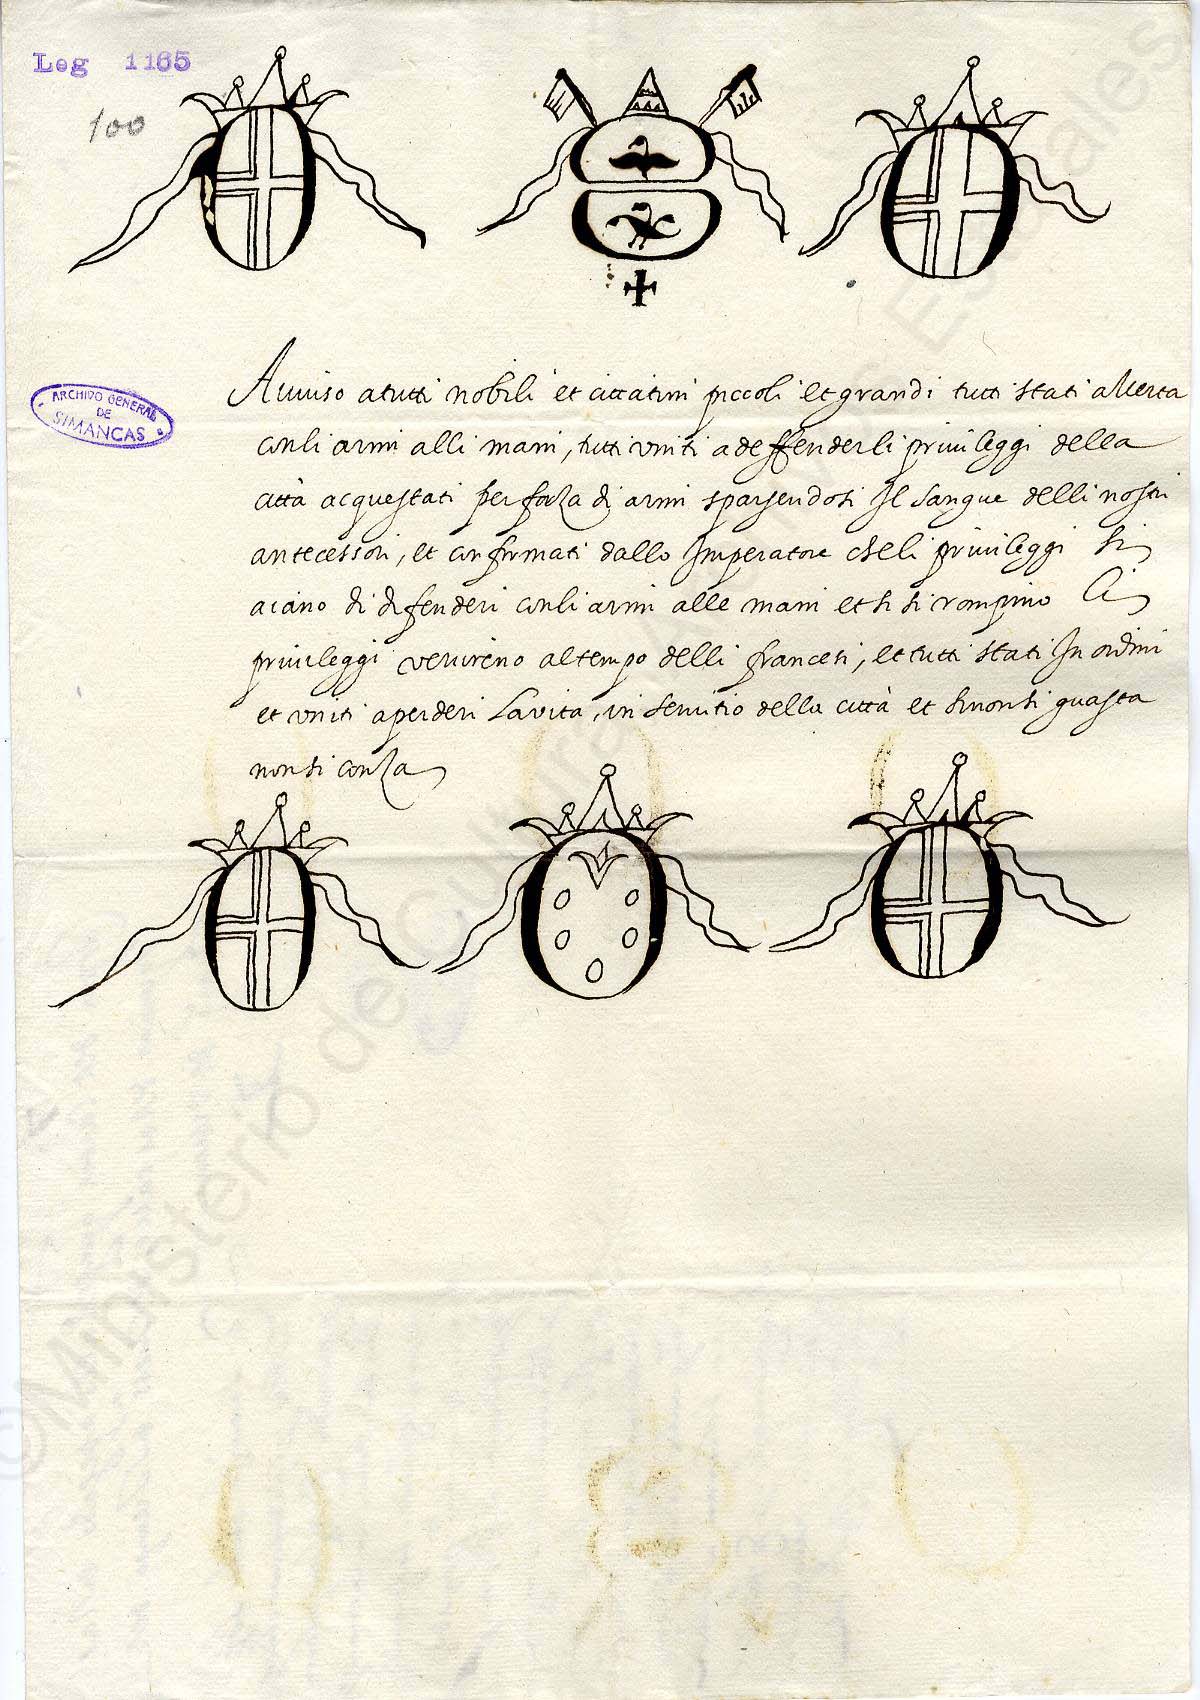 Leg 1165
100
ARCHIVO GENERAL
DE
SIMANCAS
Auuiso a tutti nobili et cittatini piccoli et grandi tutti stati allerta
con li armi alli mani, tutti vniti a deffender li priuileggi della
città acquestati per forza di armi sparsendosi Il sangue delli nostri
antecessori, et confirmati dallo Imperatore che li priuileggi si
aciano di difenderi con li armi alle mani et si si rompino li
priuileggi venireno al tempo delli francesi, et tutti stati In ordini
et vniti a perderi La vita, in seruitio della città et si non si guasta
non si conza
©Ministerio de Cultura